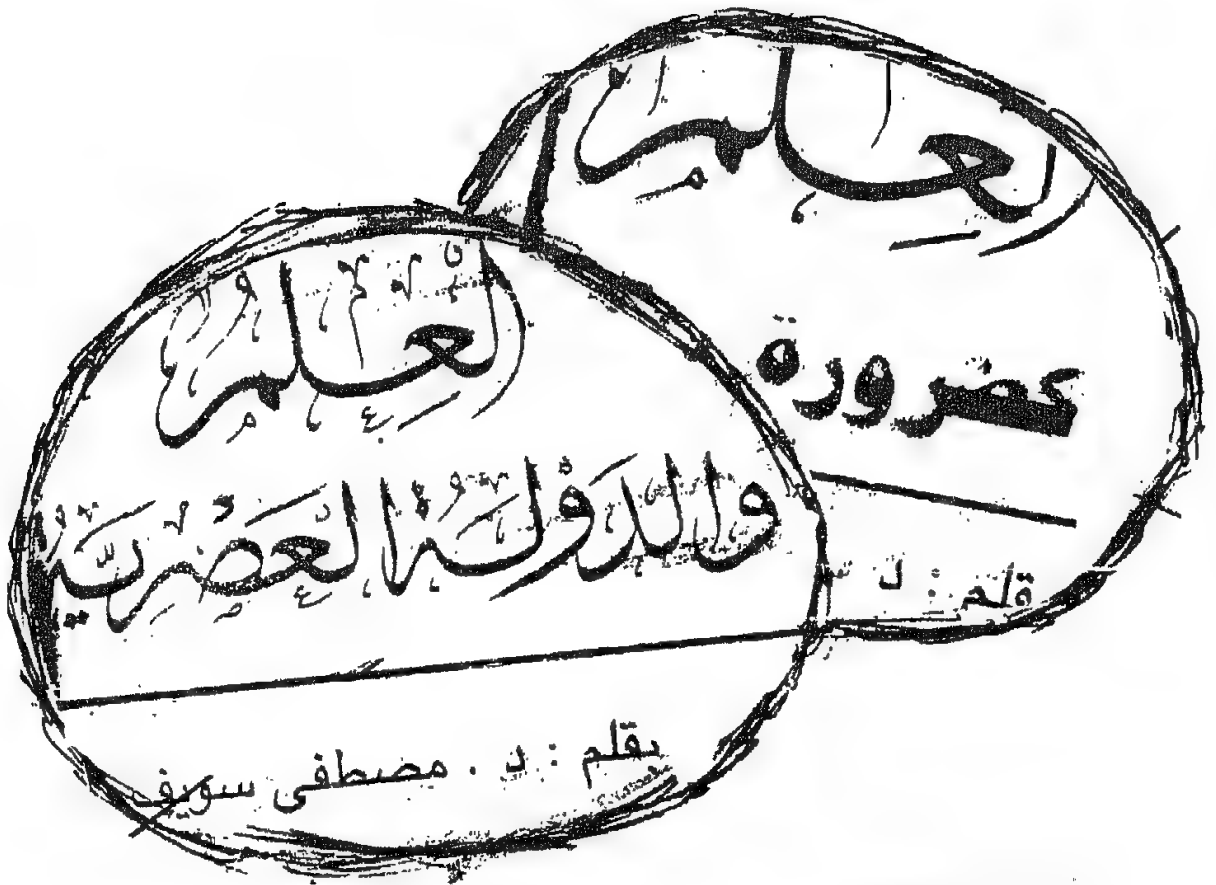 العلم
ضرورة
قلم : د
العلم
والدولة العصرية
بقلم : د . مصطفى سويف